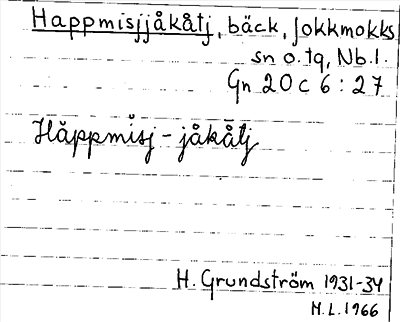 Happmisjjåkåtj, bäck, Jokkmokks
sn o. tq, Nb.l.
Gn 20 C 6:27
Håppmisj-jåkåtj
H. Grundström 1931-34
M.L. 1966